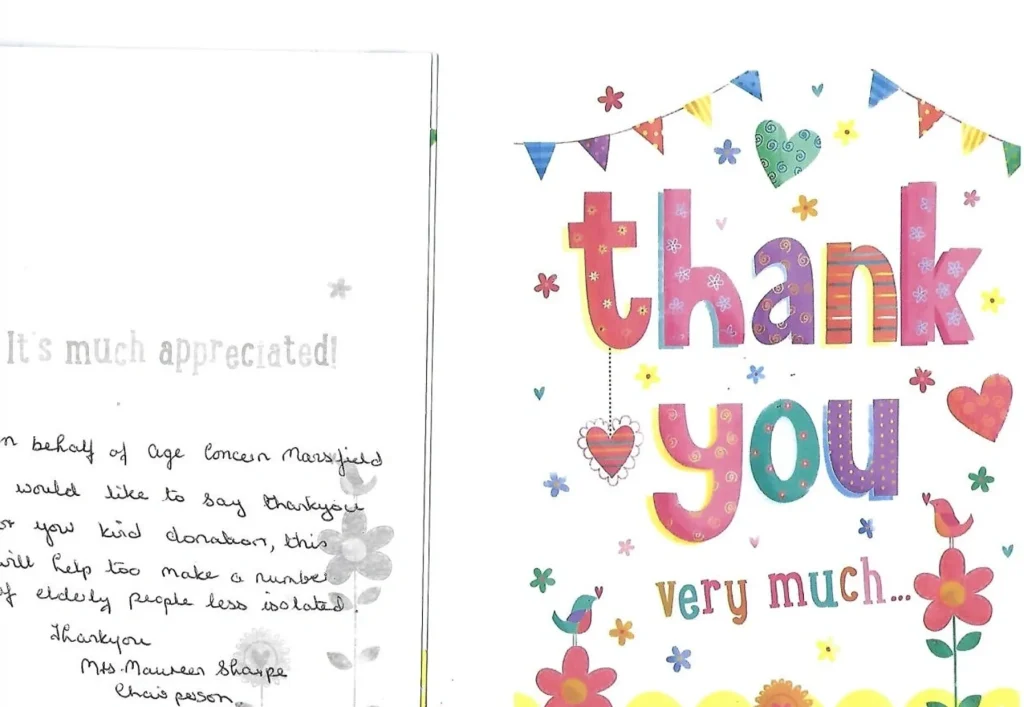 It's much appreciated!
n behalf of age Concern Mansfield
would like to say thankyou
or your kind donation, this
will help too make a number
of elderly people less isolated.
Thankyou
Mrs. Maureen Sharpe
Chairperson.
thank
you
very much...